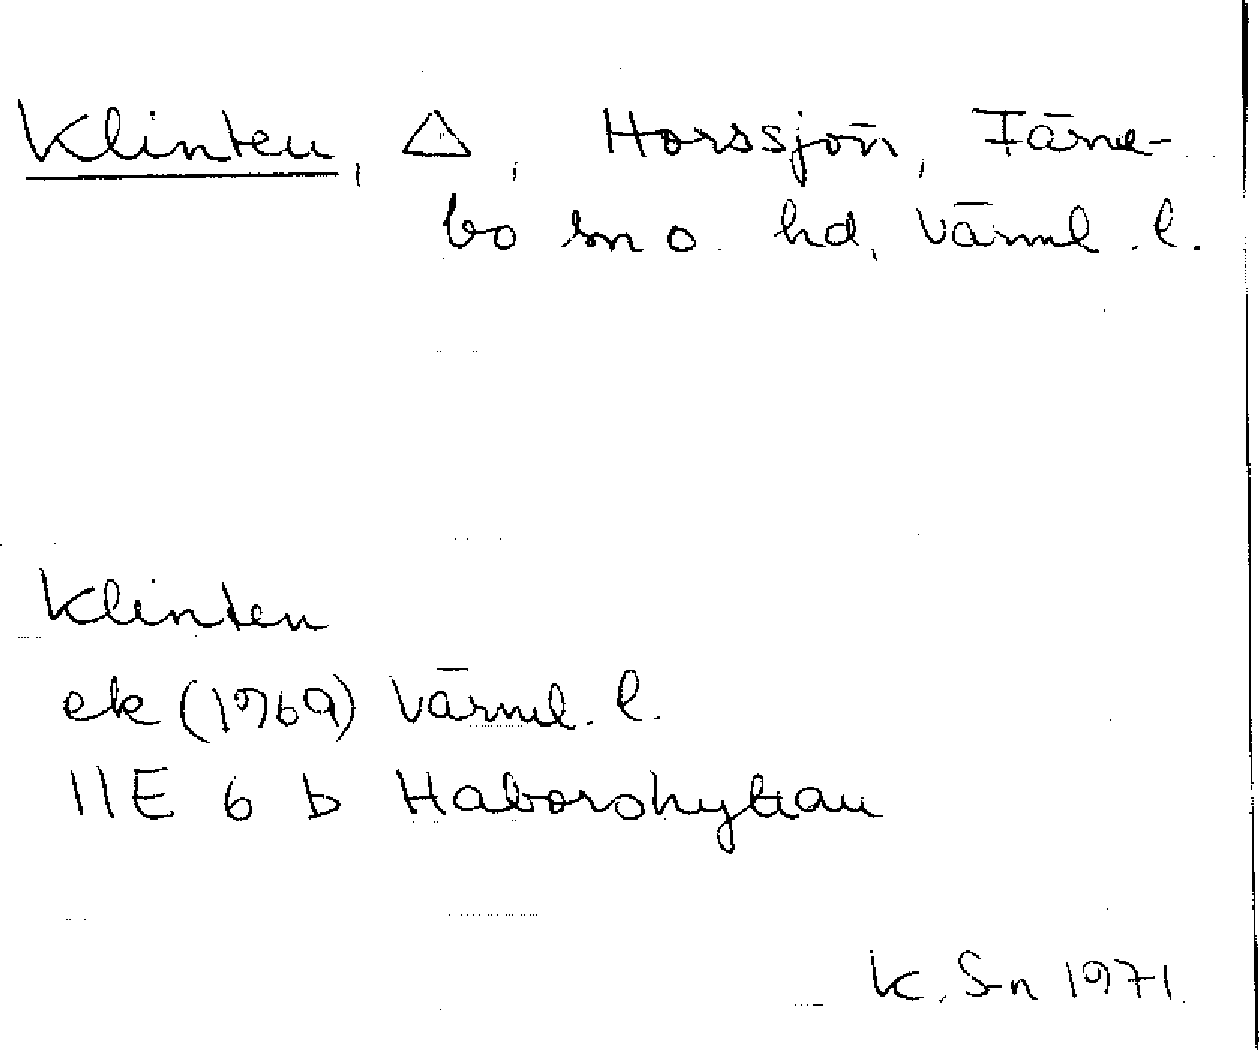 Klinten, △, Horssjön, Färne-
bo sn o. hd, Värml. l.
Klinten
ek (1969) Värml. l.
11E 6 b Haborshyttan
K. S-n 1971.